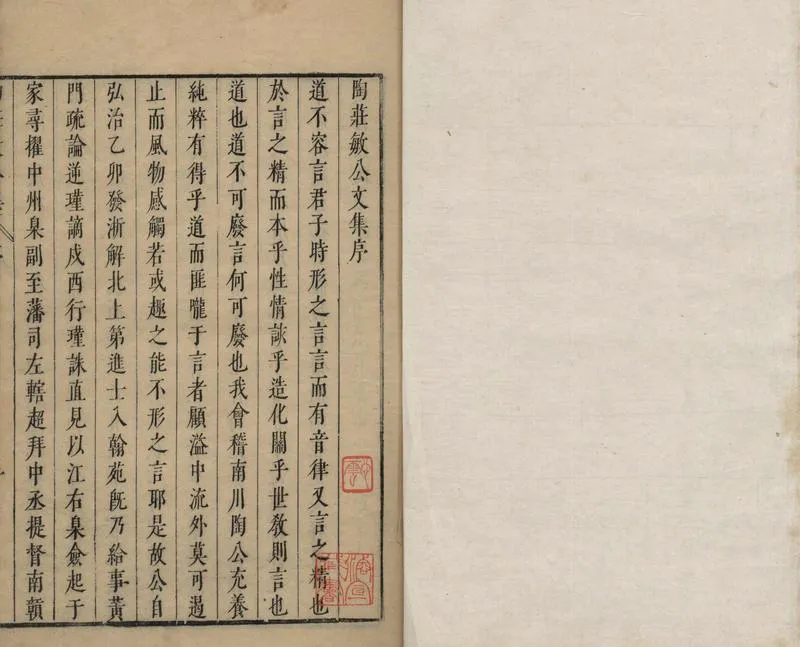 陶莊敏公文集序
道不容言君子時形之言言而有音律又言之精也
於言之精而本乎性情談乎造化關乎世教則言也
道也道不可廢言何可廢也我會稽南川陶公充養
純粹有得乎道而匪嚨于言者顧溢中流外莫可遏
止而風物感觸若或趣之能不形之言耶是故公自
弘治乙卯發浙解北上第進士入翰苑旣乃給事黃
門疏論逆瑾謫戍西行瑾誅直見以江右臬僉起于
家尋擢中州臬副至藩司左轄超拜中丞提督南贛